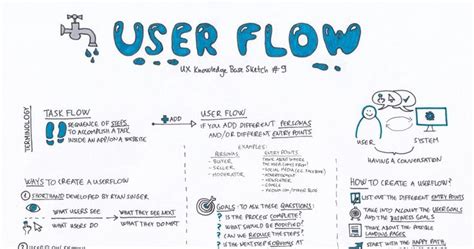 USER FLOW
UX Knowledge Base Sketch #9
TERMINOLOGY
TASK FLOW
SEQUENCE OF STEPS
TO ACCOMPLISH A TASK
INSIDE AN APP/ON A WEBSITE
ADD
USER FLOW
IF YOU ADD DIFFERENT PERSONAS
AND/OR DIFFERENT ENTRY POINTS
EXAMPLES:
PERSONAS
- BUYER
- SELLER
- MODERATOR
ENTRY POINTS
THINK ABOUT WHERE
THE USER COMES FROM!
- SOCIAL MEDIA (E.G. FACEBOOK)
- ADVERTISEMENT
- NEWSLETTER
- GOOGLE
USER
SYSTEM
HAVING A CONVERSATION
WAYS TO CREATE A USERFLOW
① SHORTHAND DEVELOPED BY RYAN SINGER
WHAT USERS SEE
WHAT USERS DO
WHAT THEY SEE NEXT
WHAT THEY DO NEXT
GOALS - TO ASK THESE QUESTIONS:
IS THE PROCESS COMPLETE?
WHAT SHOULD BE MODIFIED?
CAN WE REDUCE THE STEPS?
IS THE NEXT STEP
HOW TO CREATE A USERFLOW?
LIST OUT THE DIFFERENT ENTRY POINTS
TAKE INTO ACCOUNT THE USER GOALS
AND THE BUSINESS GOALS
THINK ABOUT THE POSSIBLE
LANDING PAGES
START WITH THE HAPPY PATH